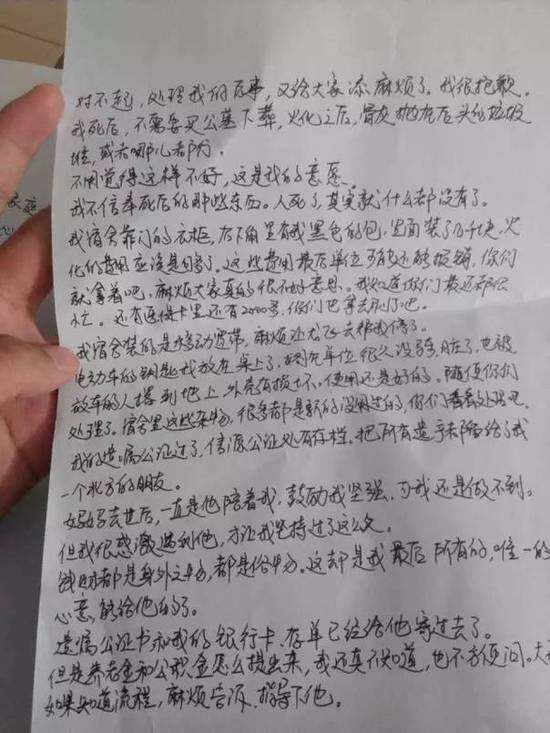 对不起，处理我的后事，又给大家添麻烦了。我很抱歉。
我死后，不需要买公墓下葬，火化之后，骨灰抛在后头的垃圾
堆，或者哪儿都行。
不用觉得这样不好，这是我的意愿。
我不信奉死后的那些东西。人死了，其实就什么都没有了。
我宿舍靠门的衣柜，左下角里有我黑色的包，里面装了几千块，火
化的费用应该是够了。这些费用最后单位可能还能报销，你们
就拿着吧，麻烦大家真的很不好意思。我知道你们最近都很
忙。还有医保卡里还有2000多，你们也拿去刷了吧。
我宿舍装的是移动宽带，麻烦让龙飞去帮我停了。
电动车的钥匙我放在桌上了，
放车的人撂到地上，外壳有损坏。使用还是好的。随便你们
处理了。宿舍里这些杂物，很多都是新的没用过的，你们看着处理吧
我的遗嘱公证过了，信源公证处有存档。把所有遗产都留给了我
一个北方的朋友。
妈妈去世后，一直是他陪着我，鼓励我坚强，可我还是做不到。
但我很感激遇到他，才让我坚持过了这么久。
钱财都是身外之物，都是俗物。这却是我最后所有的，唯一的
心意能给他的了。
遗嘱公证书和我的银行卡、存单已经给他寄过去了。
但是养老金和公积金怎么提出来，我还真不知道，也不方便问。大
如果知道流程，麻烦告诉、指导下他。